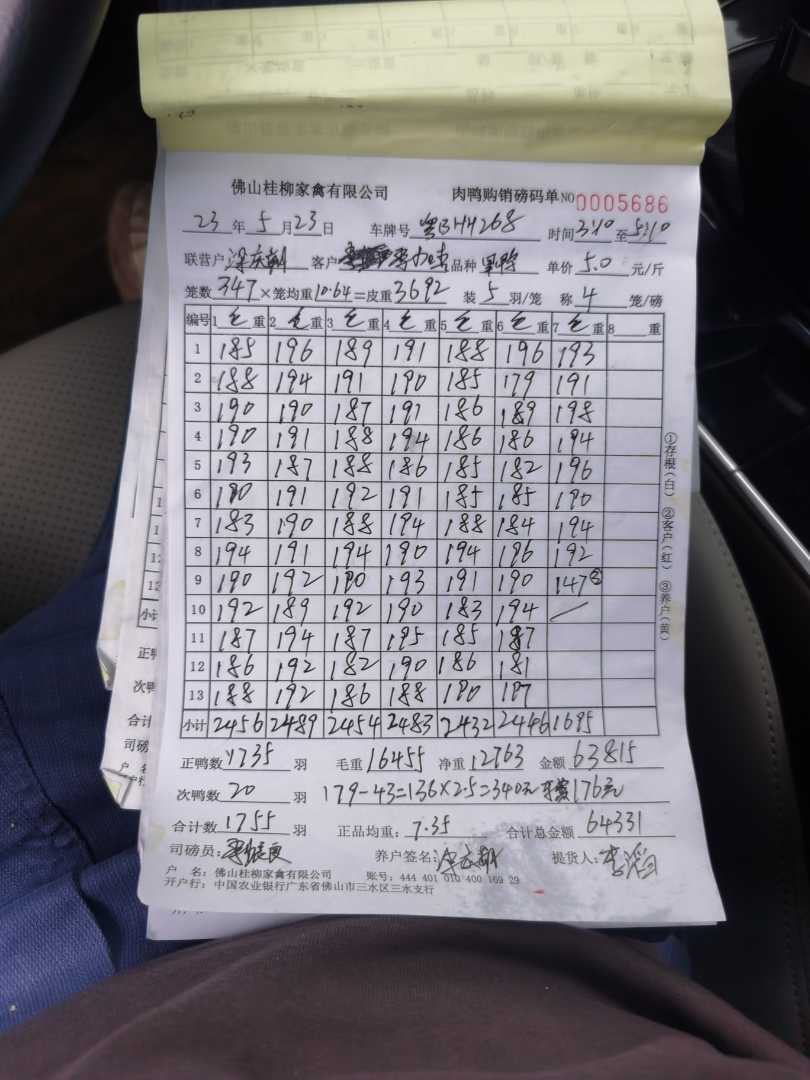 佛山桂柳家禽有限公司 肉鸭购销磅码单 NO 0005686
23 年 5 月 23 日 车牌号 粤BHH268 时间 3:10 至 5:10
联营户 梁庆新 客户 品种 单价 5.0 元/斤
笼数 347 × 笼均重 10.64 = 皮重 3692 装 5 羽/笼 称 4 笼/磅
编号 1 毛 重 2 毛 重 3 毛 重 4 毛 重 5 毛 重 6 毛 重 7 毛 重 8 重
1 185 196 189 191 188 196 193
2 188 194 191 190 185 179 191
3 190 190 187 191 186 189 198
4 190 191 188 194 186 186 194
5 193 187 188 186 185 182 196
6 190 191 192 191 185 185 190
7 183 190 188 194 188 184 194
8 194 191 194 190 194 196 192
9 190 192 190 193 191 190 147③
10 192 189 192 190 183 194
11 187 194 187 195 185 187
12 186 192 182 190 186 181
13 188 192 186 188 190 197
小计 2456 2489 2454 2483 2432 2446 1695
正鸭数 1735 羽 毛重 16455 净重 12763 金额 63815
次鸭数 20 羽 179-43=136×2.5=340元 176元
合计数 1755 羽 正品均重: 7.35 合计总金额 64331
司磅员: 养户签名: 提货人: 李滔
户 名: 佛山桂柳家禽有限公司 账号: 444 401 010 400 169 29
开户行: 中国农业银行广东省佛山市三水区三水支行
①存根(白) ②客户(红) ③养户(黄)